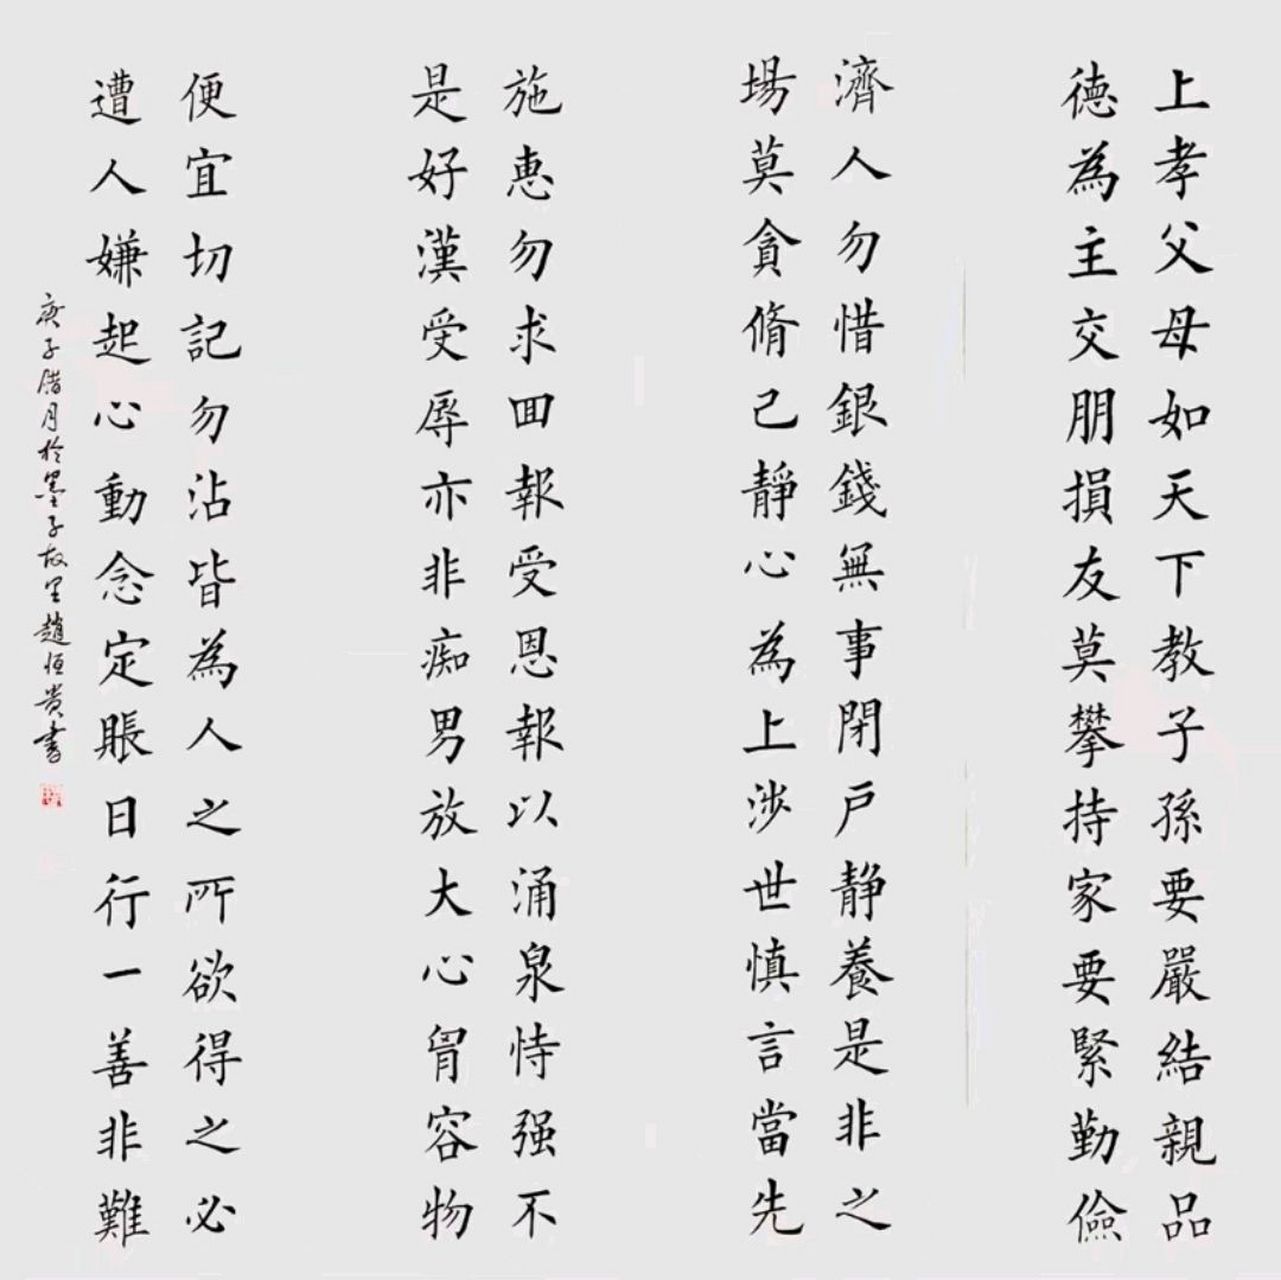 上孝父母如天下教子孫要嚴結親品
德為主交朋損友莫攀持家要緊勤儉
濟人勿惜銀錢無事閉戶静養是非之
場莫貪脩己靜心為上涉世慎言當先
施惠勿求回報受恩報以涌泉恃强不
是好漢受辱亦非痴男放大心胷容物
便宜切記勿沾皆為人之所欲得之必
遭人嫌起心動念定賬日行一善非難
庚子腊月於墨子故里趙恒贵書